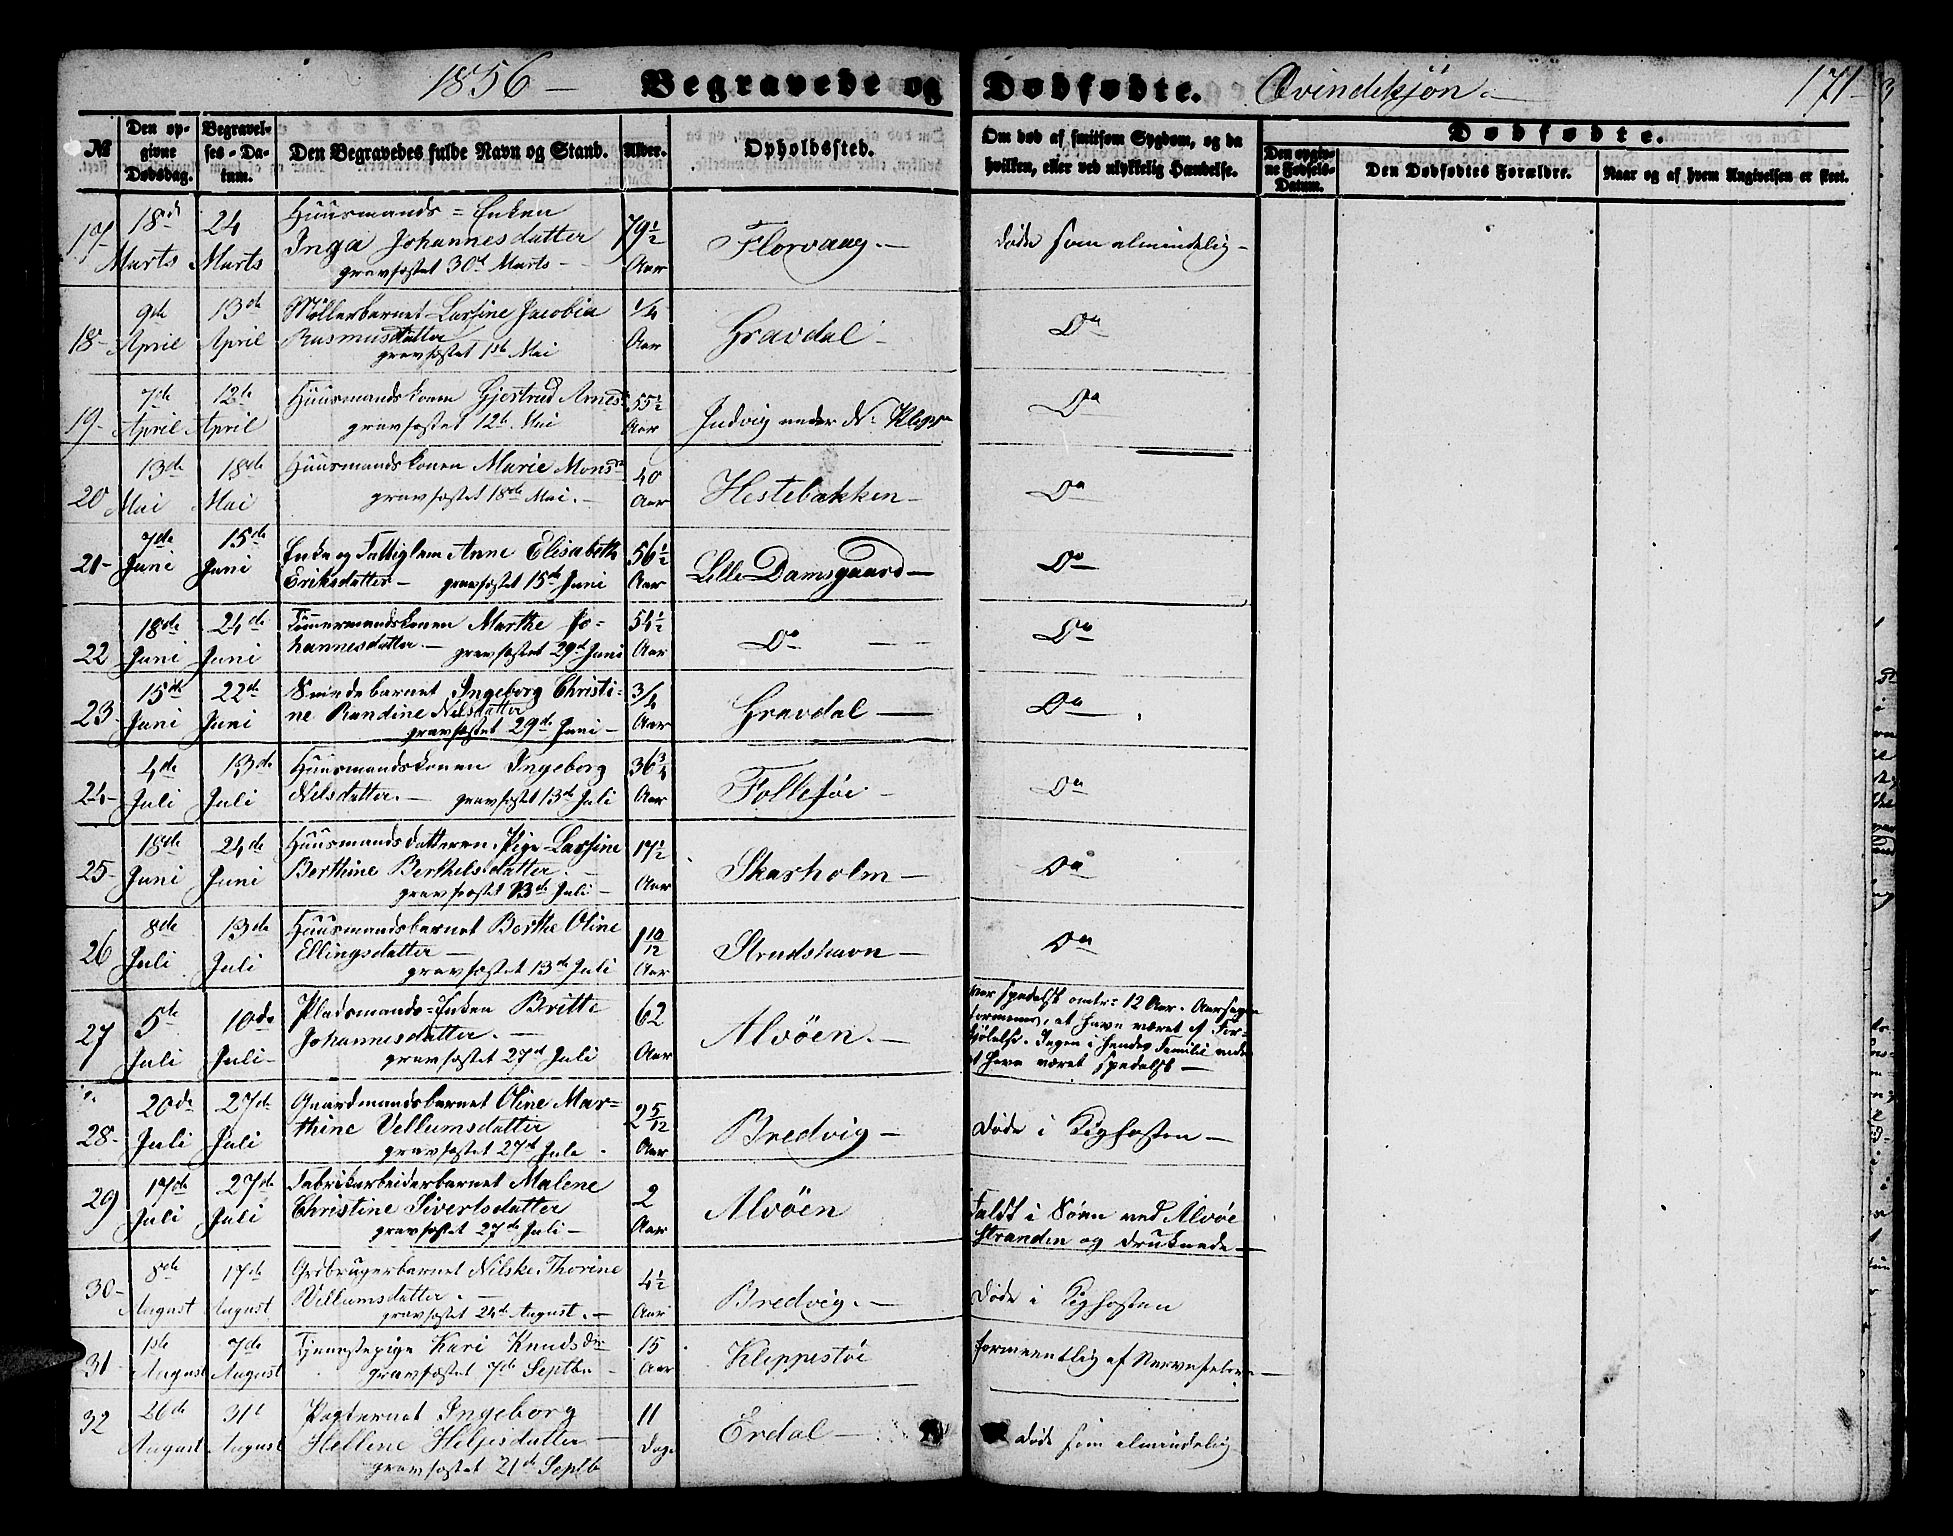 1856 — Begravede og Dødfødte. Qvindekjøn. — 171
№
Den opgivne Dødsdag.
Begravelses-Datum.
Den Begravedes fulde Navn og Stand.
Alder.
Opholdssted.
Om død af smitsom Sygdom, og da hvilken, eller ved ulykkelig Hændelse.
Dødfødte.
Den opgivne Fødsels-Datum.
Den Dødfødtes Forældre.
Naar og af hvem Angivelsen er skeet.
17- 18de Marts 24 Marts Huusmands-Enken
Inga Johannesdatter
gravfæstet 30te Marts — 79½ Aar Florvaag. — Døde som almindelig —
18- 9de April 13de April Møllerbarnet Larsine Jacobia
Rasmusdatter
gravfæstet 1ste Mai ¼ Aar Gravdal — Do
19- 7de April 12te April Huusmandskonen Gjertrud Arnesd.
gravfæstet 12te Mai 55½ Aar Indvig under N. Klep Do
20 13de Mai 18de Mai Huusmandskonen Marie Monsdr
gravfæstet 18de Mai. — 40 Aar Hestebakken — Do
21- 7de Juni 15de Juni Enke og Fattiglem Anne Elisabeth
Eriksdatter — gravfæstet 15de Juni 56½ Aar Lille Damsgaard — Do
22 18de Juni 24de Juni Tømmermandskonen Marthe Jo-
hannesdatter. — gravfæstet 29de Juni 54½ Aar Do — Do
23- 15de Juni 22de Juni Smedebarnet Ingeborg Christi-
ne Randine Nilsdatter
gravfæstet 29de Juni — ¾ Aar Gravdal — Do
24- 4de Juli 13de Juli Huusmandskonen Ingeborg
Nilsdatter. — gravfæstet 13de Juli 36¾ Aar Follesøe — Do
25- 18de Juni 24de Juni Huusmandsdatteren, Pige Larsine
Berthine Berthelsdatter. —
gravfæstet 13de Juli — 17½ Aar Skarholm — Do
26 8de Juli 13de Juli Huusmandsbarnet Berthe Oline
Ellingsdatter —
gravfæstet 13de Juli 1 10/12 Aar Strudshavn — Do
27 5te Juli 10de Juli — Pladsmands-Enken Britte
Johannesdatter. —
gravfæstet 27de Juli 62 Aar Alvøen. — var spedalsk omtr. 12 Aar. Aarsagen
formenes, at have været af For-
kjølelse. Ingen i hendes Familie vides
at have været spedalsk —
28- 20de Juli 27de Juli Gaardmandsbarnet Oline Mar-
thine Vellumsdatter
gravfæstet 27de Juli. 2 5/12 Aar Bredvig — Døde i Kighosten —
29 17de Juli 27de Juli Fabrikarbeiderbarnet Malene
Christine Sivertsdatter
gravfæstet 27de Juli — 2 Aar Alvøen Faldt i Søen ved Alvøe
Stranden og druknede —
30- 8de August 17de August Grdbrugerbarnet Nilske Thorine
Vellumsdatter. —
gravfæstet 24de August. — 4½ Aar Bredvig. — Døde i Kighosten
31- 1ste August 7de August Tjenestepige Kari Knudsdr
gravfæstet 7de Septbr — 15 Aar Kleppestøe formeentlig af Nervefeber —
32 26de August 31te August Pogternet Ingeborg
Hellene Heljesdatter —
gravfæstet 21de Septb 11 Dage Erdal — Døde som almindelig